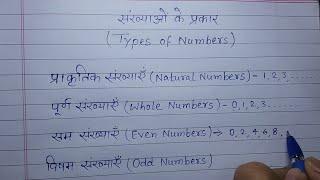 संख्याओं के प्रकार
(Types of Numbers)
प्राकृतिक संख्याएँ (Natural Numbers) - 1,2,3.......
पूर्ण संख्याएँ (Whole Numbers) - 0,1,2,3.......
सम संख्याएँ (Even Numbers) → 0,2,4,6,8,
विषम संख्याएँ (Odd Numbers)